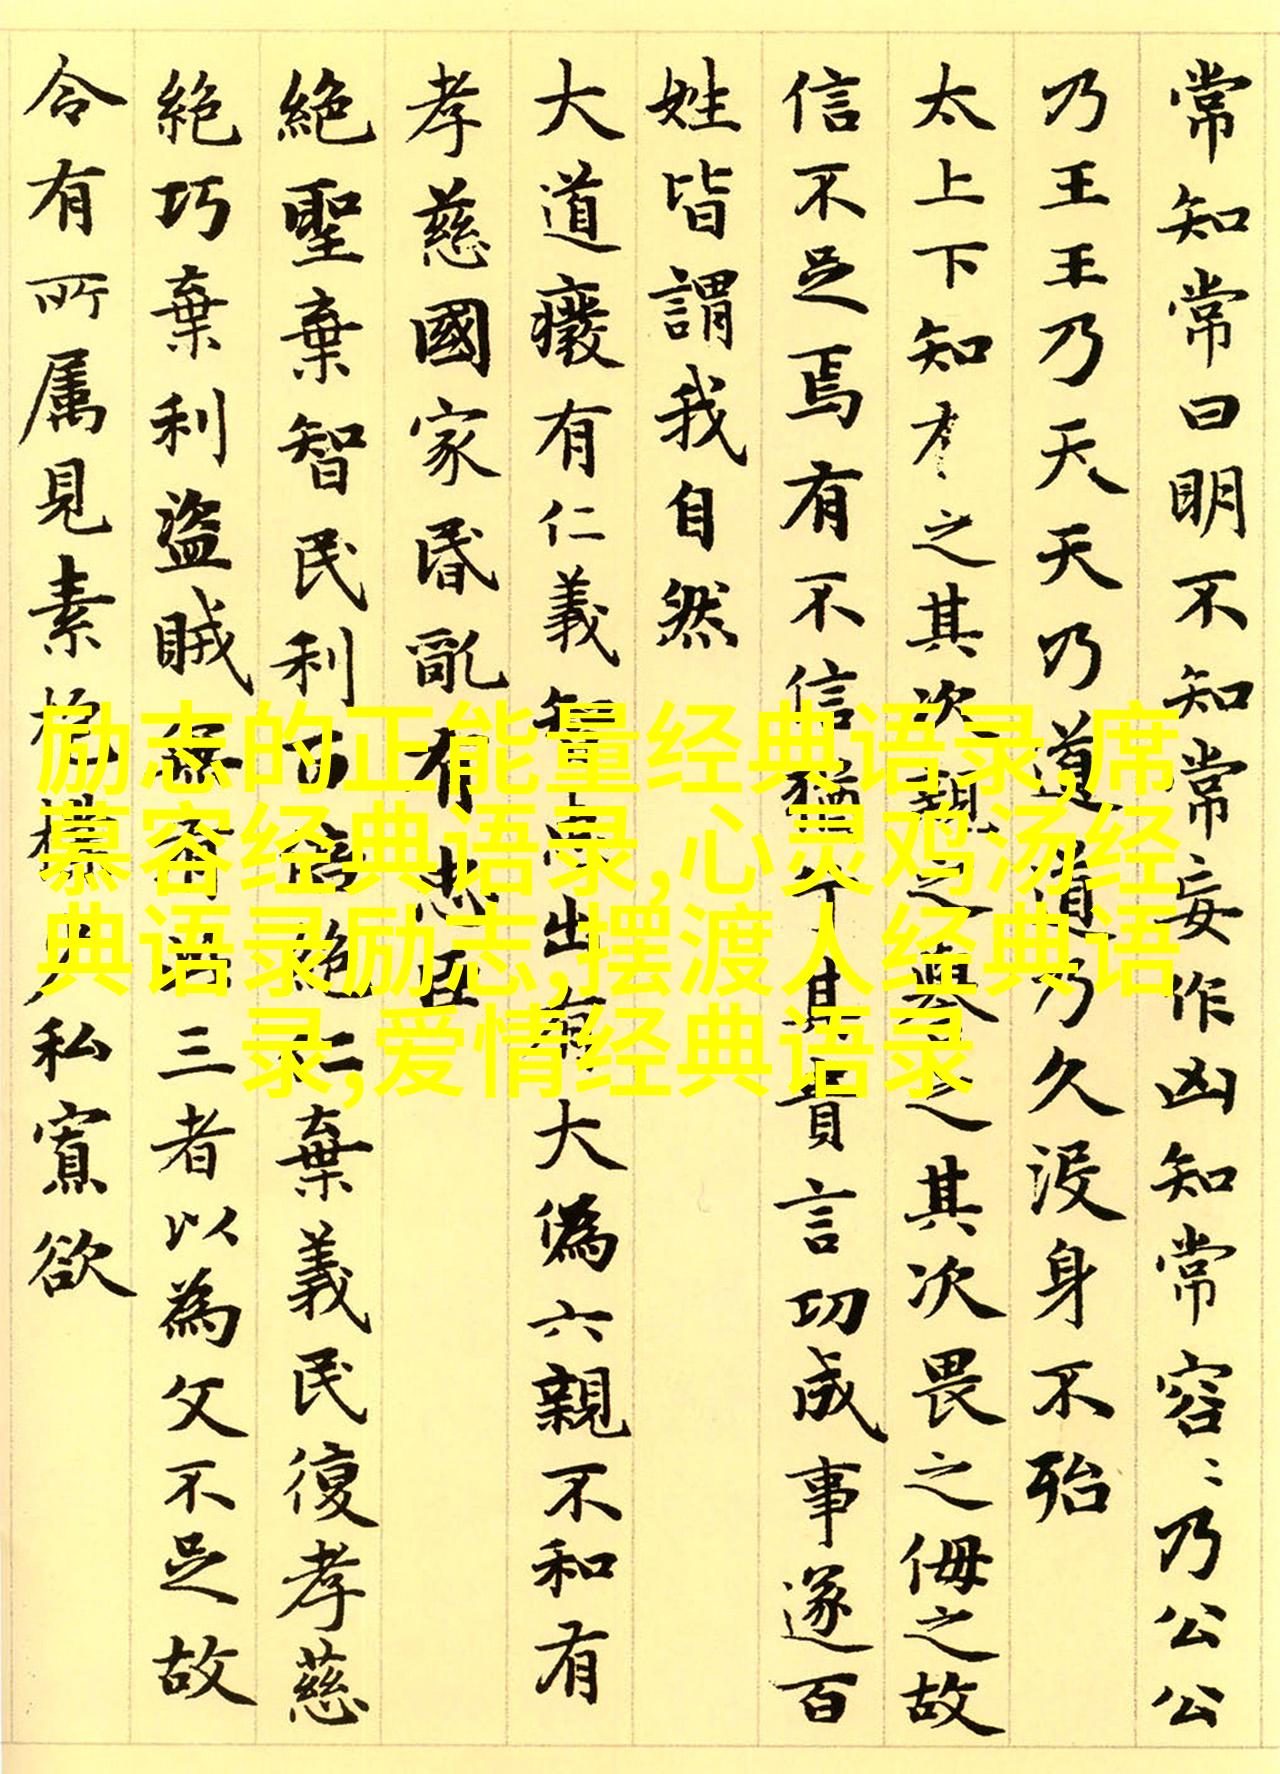 常知常曰明不知常妄作凶知常容〻乃公公
乃王王乃天天乃道道乃久沒身不殆
太上下知有之其次親之譽之其次畏之侮之故
信不足焉有不信猶兮其貴言功成事遂百
姓皆謂我自然
大道癈有仁義智惠出有大偽六親不和有
孝慈國家昬亂有忠臣
絕聖棄智民利百倍絕仁棄義民復孝慈
絕巧棄利盜賊無有此三者以為文不足故
令有所属見素抱樸少私寡欲
励志的正能量经典语录,席
慕容经典语录,心灵鸡汤经
典语录励志,摆渡人经典语
录,爱情经典语录